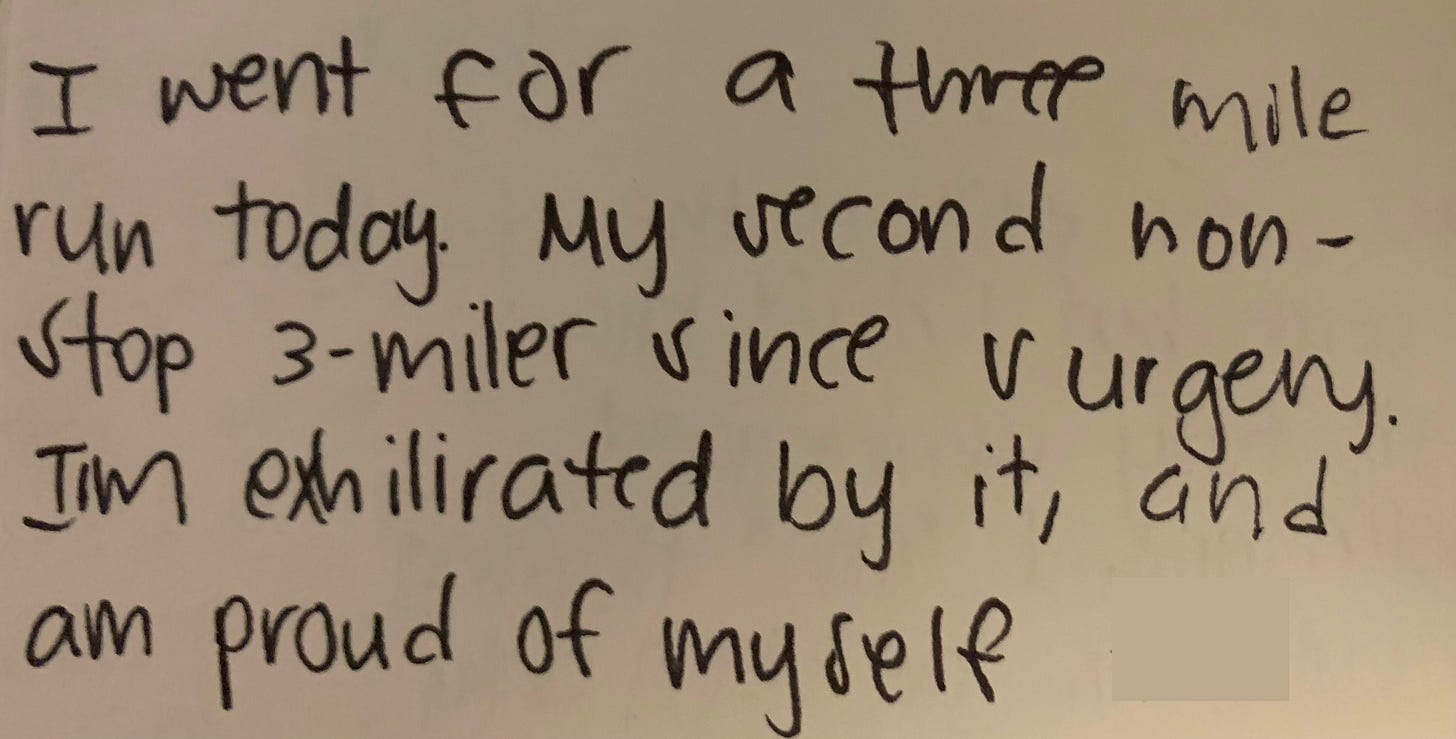 I went for a three mile
run today. My second non-
stop 3-miler since surgery.
I'm exhilirated by it, and
am proud of myself